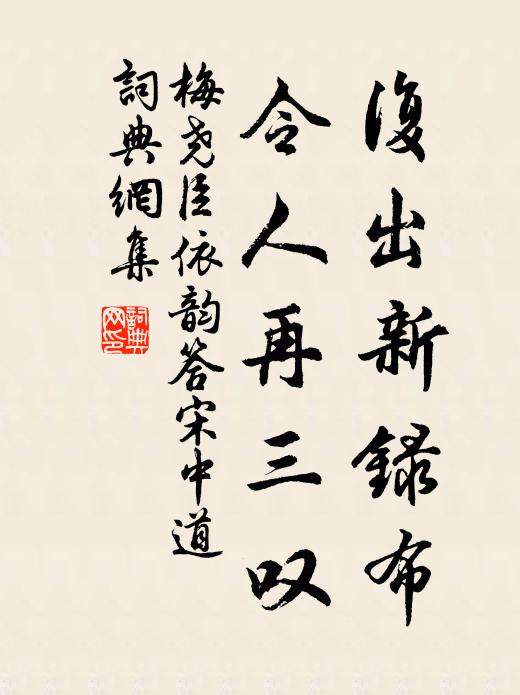 復出新録布
令人再三叹
梅尧臣依韵答宋中道
詞典網集
詞典网印